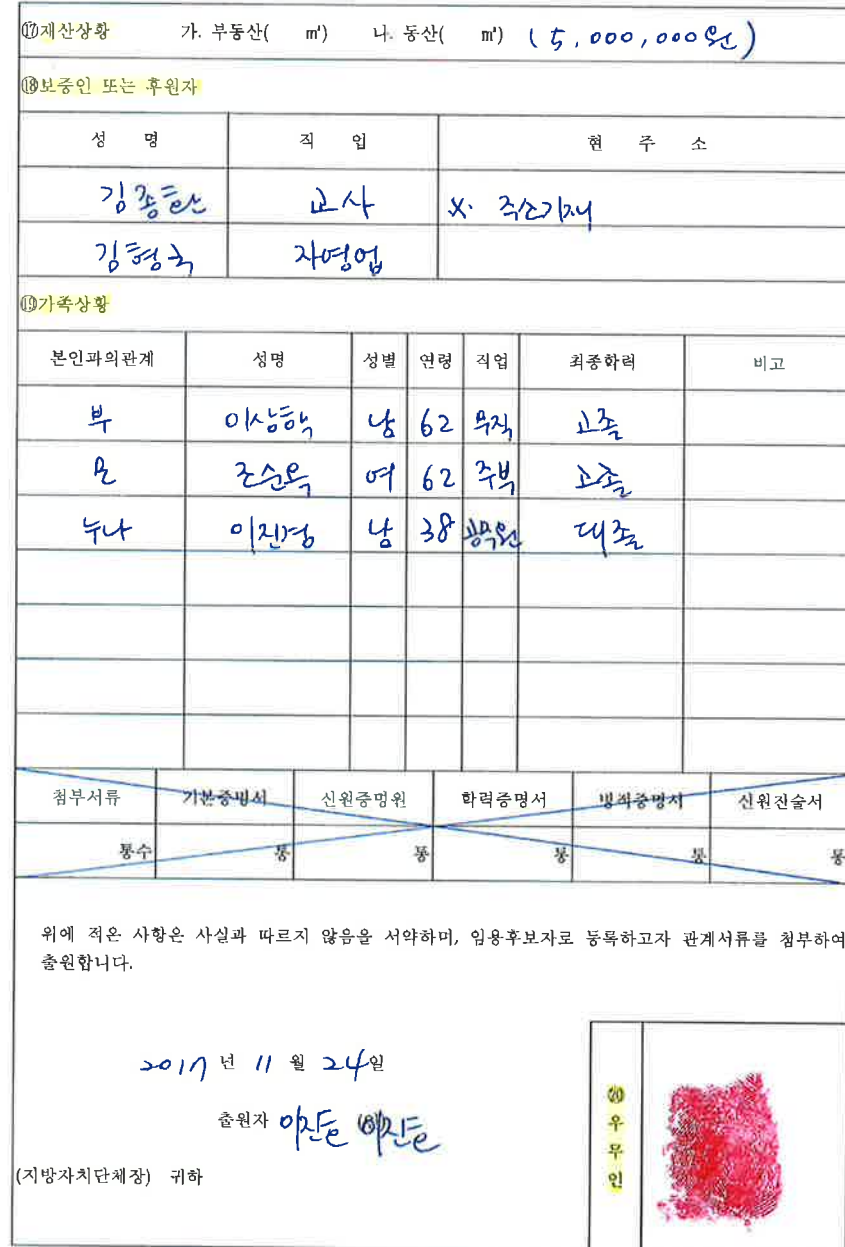 ⑰재산상황 가. 부동산( ㎡) 나. 동산( ㎡) (5,000,000원)
⑱보증인 또는 후원자
성 명 직 업 현 주 소
김종탄 교사 X. 주소기재
김형국 자영업
⑲가족상황
본인과의관계 성명 성별 연령 직업 최종학력 비고
부 이상학 남 62 무직 고졸
모 조순옥 여 62 주부 고졸
누나 이진경 남 38 공무원 대졸
첨부서류 기본증명서 신원증명원 학력증명서 병적증명서 신원진술서
통수 통 통 통 통 통
위에 적은 사항은 사실과 따르지 않음을 서약하며, 임용후보자로 등록하고자 관계서류를 첨부하여
출원합니다.
2017 년 11 월 24일
출원자
(지방자치단체장) 귀하
⑳우무인